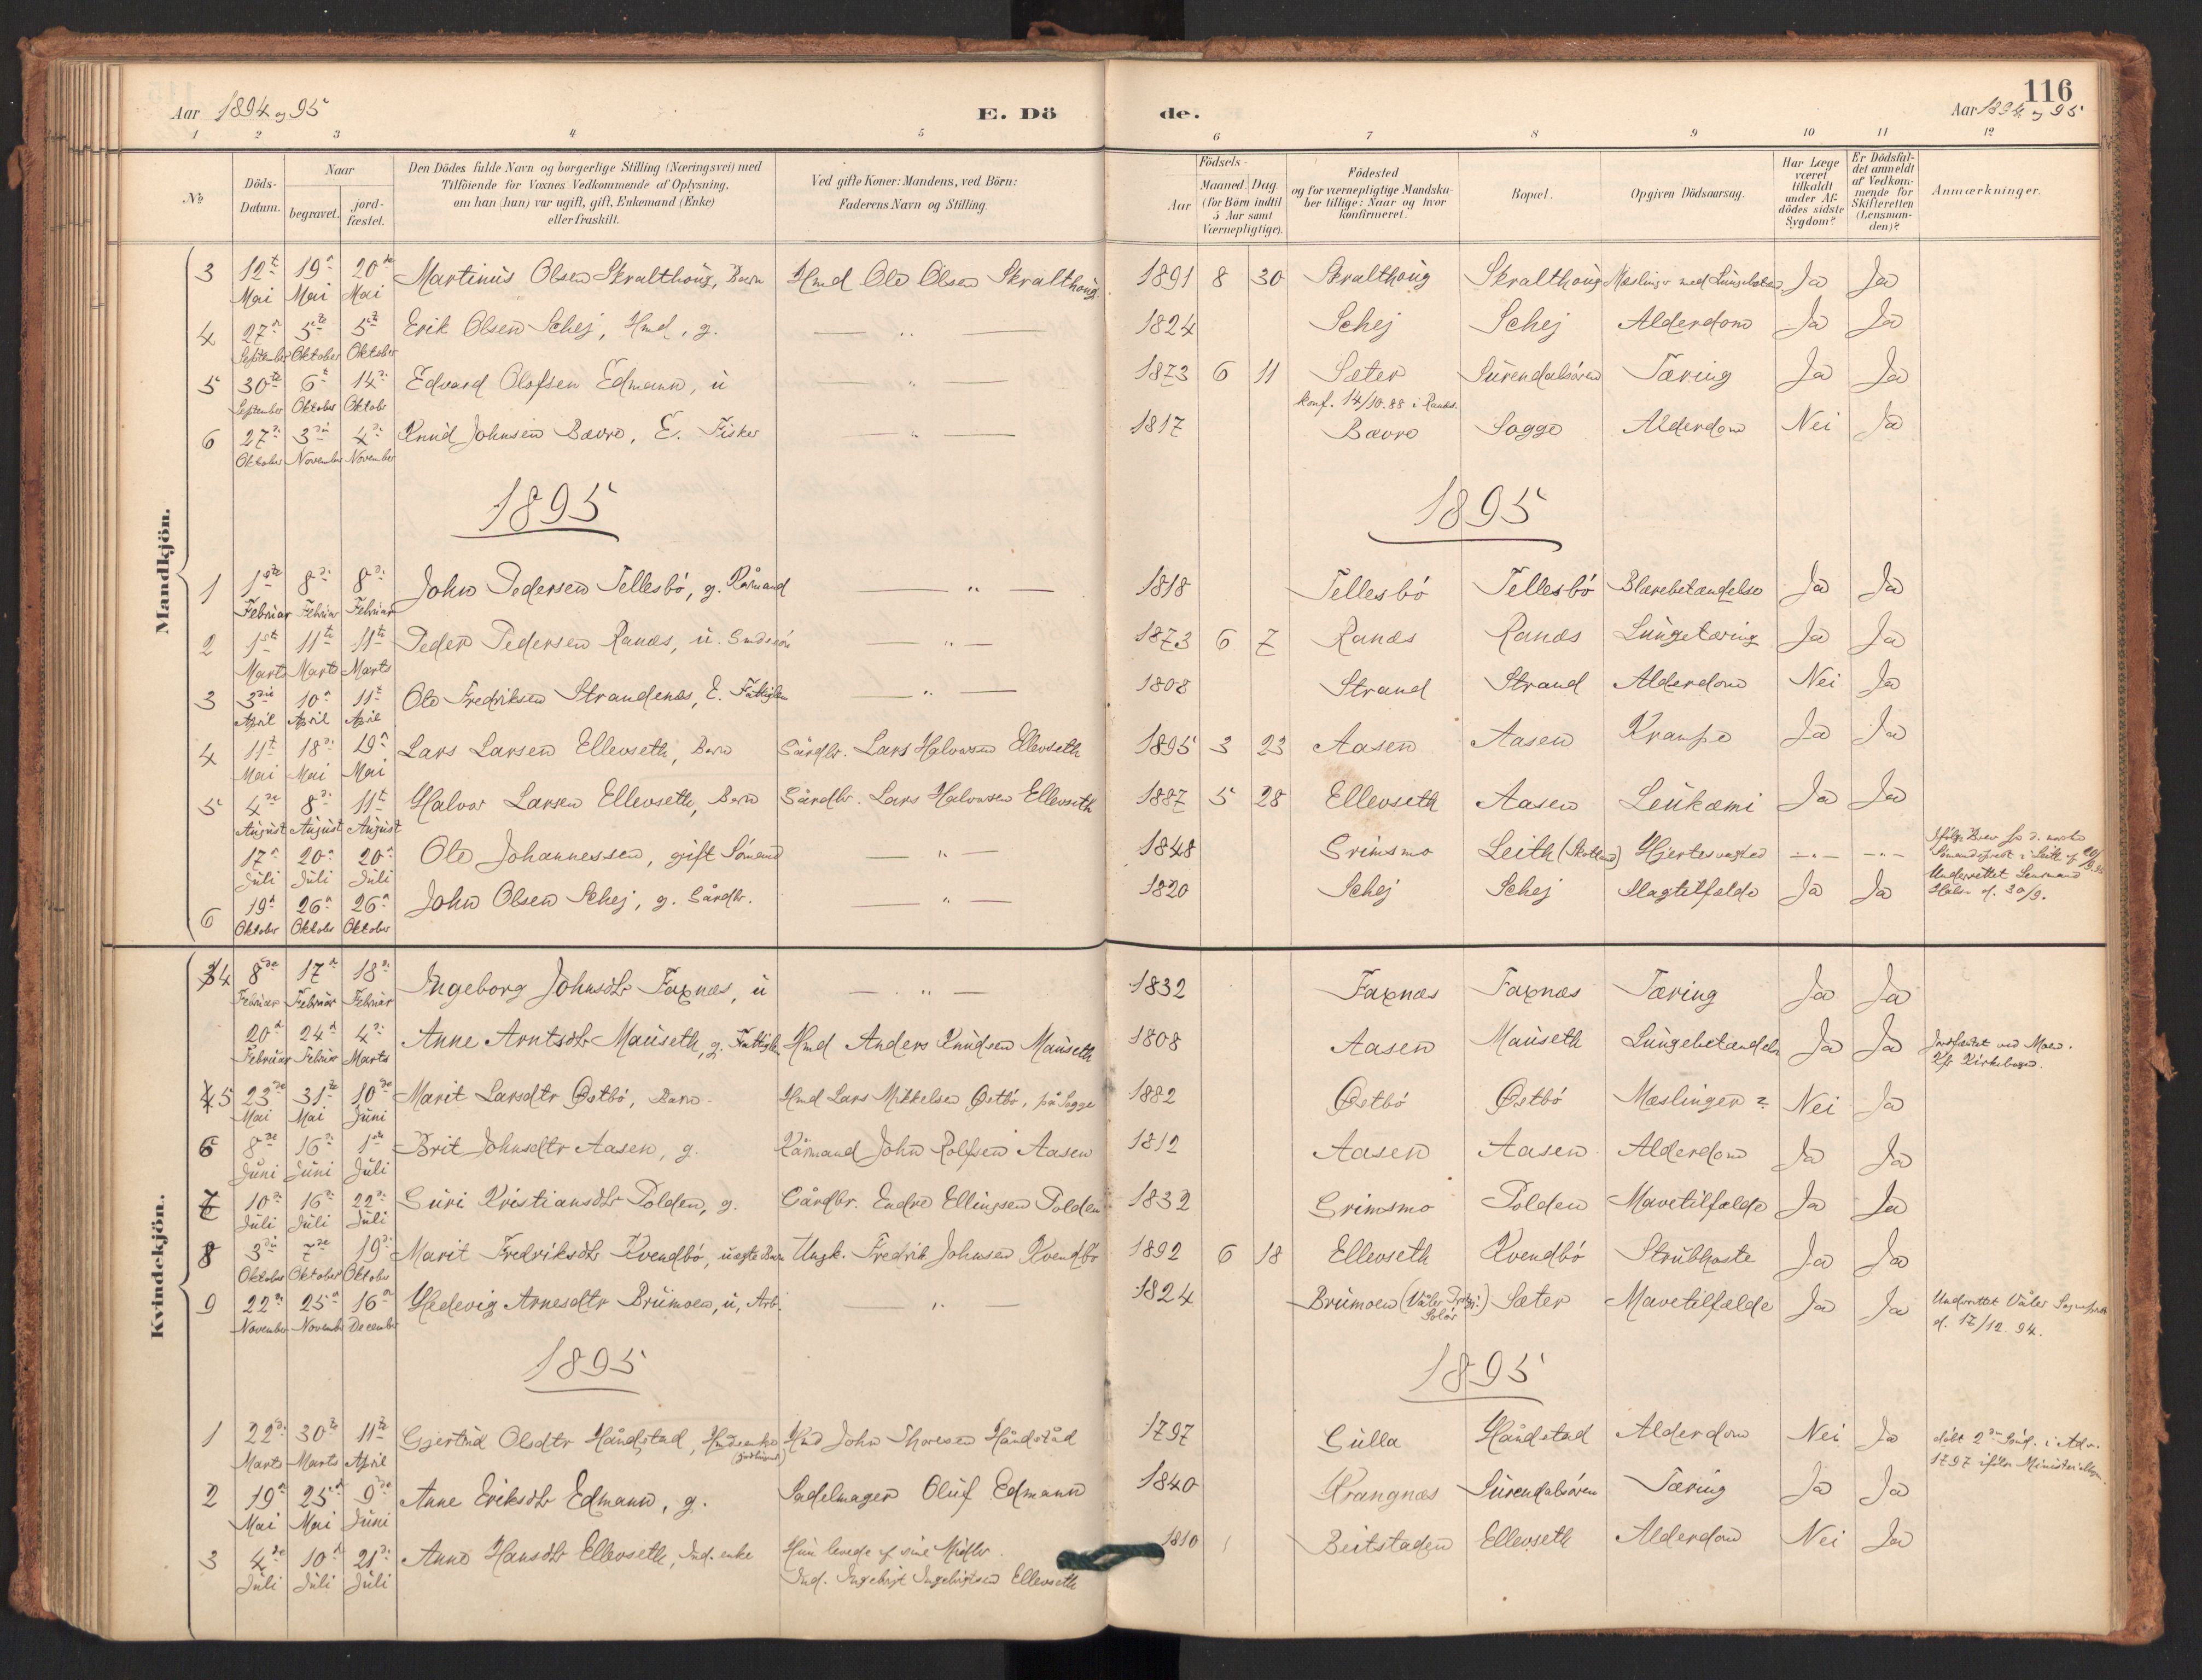 Aar 1894 og 95
E. Dö
de.
116
Aar 1894 og 95
1 2 3 4 5 6 7 8 9 10 11 12
No
Döds-Datum.
Naar
begravet.
jord-fæstet.
Den Dödes fulde Navn og borgerlige Stilling (Næringsvei) med
Tilföiende for Voxnes Vedkommende af Oplysning,
om han (hun) var ugift, gift, Enkemand (Enke)
eller fraskilt.
Ved gifte Koner: Mandens, ved Börn:
Faderens Navn og Stilling.
Födsels-
Aar
Maaned. Dag.
(for Börn indtil
5 Aar samt
Værnepligtige).
Födested
og for værnepligtige Mandska-
ber tillige: Naar og hvor
konfirmeret.
Bopæl.
Opgiven Dödsaarsag.
Har Læge
været
tilkaldt
under Af-
dödes sidste
Sygdom?
Er Dödsfal-
det anmeldt
af Vedkom-
mende for
Skifteretten
(Lensman-
den)?
Anmærkninger.
Mandkjön.
3 12t Mai 19n Mai 20de Mai Martinus Olsen Skralthoug, Barn Hmd Ole Olsen Skralthoug 1891 8 30 Skralthoug Skralthoug Mæslinger med Ja Ja
4 27n September 5te Oktober 5te Oktober Erik Olsen Schej, Hmd, g. — „ — 1824 Schej Schej Alderdom Ja Ja
5 30te September 6t Oktober 14di Oktobr Edvard Olofsen Edmann, u — „ — 1873 6 11 Sæter Surendalsören Tæring Ja Ja
konf. 14/10.88 i
6 27di Oktober 3die November 4di November Knud Johnsen Bævre, E. Fisker — „ — 1817 Bævre Sogge Alderdom Nei Ja
1895
1895
1 1ste Februar 8di Februar 8di Februar John Pedersen Tellesbö, g. Kårmand — „ — 1818 Tellesbö Tellesbö Blærebetændelse Ja Ja
2 1st Marts 11te Marts 11te Marts Peder Pedersen Ranæs, u. — „ — 1873 6 7 Ranæs Ranæs Lungetæring Ja Ja
3 3die April 10n April 11te April Ole Fredriksen Strandenæs, E. Fattiglem — „ — 1808 Strand Strand Alderdom Nei Ja
4 11t Mai 18di Mai 19n Mai Lars Larsen Ellevseth, Barn Gårdbr. Lars Halvorsen Ellevseth 1895 3 23 Aasen Aasen Krampe Ja Ja
5 4de August 8di August 11t August Halvor Larsen Ellevseth, Barn Gårdbr. Lars Halvorsen Ellevseth 1887 5 28 Ellevseth Aasen Leukæmi Ja Ja
17n Juli 20n Juli 20n Juli Ole Johannessen, gift Sömand — „ — 1848 Grimsmo Leith (Skotland) Hjertesvaghed — „ — — „ — Ifölge Brev fra d. norske
Sömandsprest i Leith af
Underrettet Lensmand
d. 30/9.
6 19n Oktober 26n Oktober 26n Oktober John Olsen Schej, g. Gårdbr. — „ — 1820 Schej Schej Slagtilfælde Ja Ja
Kvindekjön.
3 4 8de Februar 17n Februar 18di Februar Ingeborg Johnsdtr Faxnæs, u — „ — 1832 Faxnæs Faxnæs Tæring Ja Ja
20n Februar 24n Februar 4di Marts Anne Arntsdtr Mauseth, g. Fattigl. Hmd Anders Knudsen Mauseth 1808 Aasen Mauseth Lungebetændelse Ja Ja Jordfæstet ved Moen.
Kfr Kirkebogen.
4 5 23de Mai 31te Mai 10de Juni Marit Larsdtr Østbö, Barn. Hmd Lars Mikkelsen Østbö, på Sogge 1882 Østbö Østbö Mæslinger ? Nei Ja
6 8de Juni 16di Juni 1ste Juli Brit Johnsdtr Aasen, g. Kårmand John Rolfsen Aasen 1812 Aasen Aasen Alderdom Ja Ja
7 10di Juli 16di Juli 22di Juli Guri Kristiansdtr Polden, g. Gårdbr. Endre Ellingsen Polden 1832 Grimsmo Polden Mavetilfælde Ja Ja
8 3die Oktober 7de Oktober 19di Oktober Marit Fredriksdtr Kvendbö, uægte Barn Ungk. Fredrik Johnsen Kvendbö 1892 6 18 Ellevseth Kvendbö Strubhoste Ja Ja
9 22n November 25n Novembr 16n December Hedevig Arnesdtr Brumoen, u, Arb. — „ — 1824 Brumoen (Våler Solör) Sæter Mavetilfælde Ja Ja Underrettet Våler Sogneprest
d. 17/12. 94.
1895
1895
1 22di Marts 30te Marts 11te April Gjertrud Olsdtr Håndstad, Hmdsenke Hmd John Thoresen Håndstad 1797 Gulla Håndstad Alderdom Nei Ja döbt 2den Sönd. i Adv.
1797 ifölge
2 19n Mai 25n Mai 9de Juni Anne Eriksdtr Edmann, g. Sadelmager Oluf Edmann 1840 Krangnæs Surendalsören Tæring Ja Ja
3 4de Juli 10n Juli 21di Juli Anne Hansdtr Ellevseth, Ind. enke Hun levede af sine Midler.
Ind. Ingebrigt Ingebrigtsen Ellevseth 1810 Beitstaden Ellevseth Alderdom Nei Ja